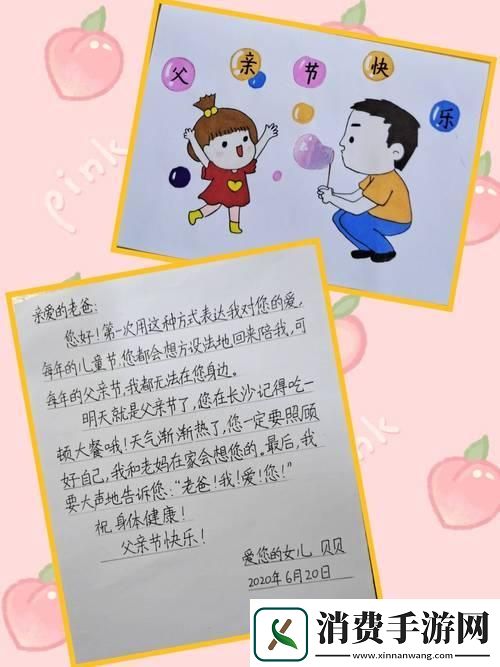 父亲节快乐
pink
亲爱的老爸:
您好!第一次用这种方式表达我对您的爱,
每年的儿童节,您都会想方设法地回来陪我,可
每年的父亲节,我都无法在您身边。
明天就是父亲节了,您在长沙记得吃一
顿大餐哦!天气渐渐热了,您一定要照顾
好自己,我和老妈在家会想您的。最后,我
要大声地告诉您:“老爸!我!爱!您!”
祝身体健康!
父亲节快乐!
爱您的女儿 贝贝
2020年6月20日
pink
消费手游网
www.xinnanwang.com